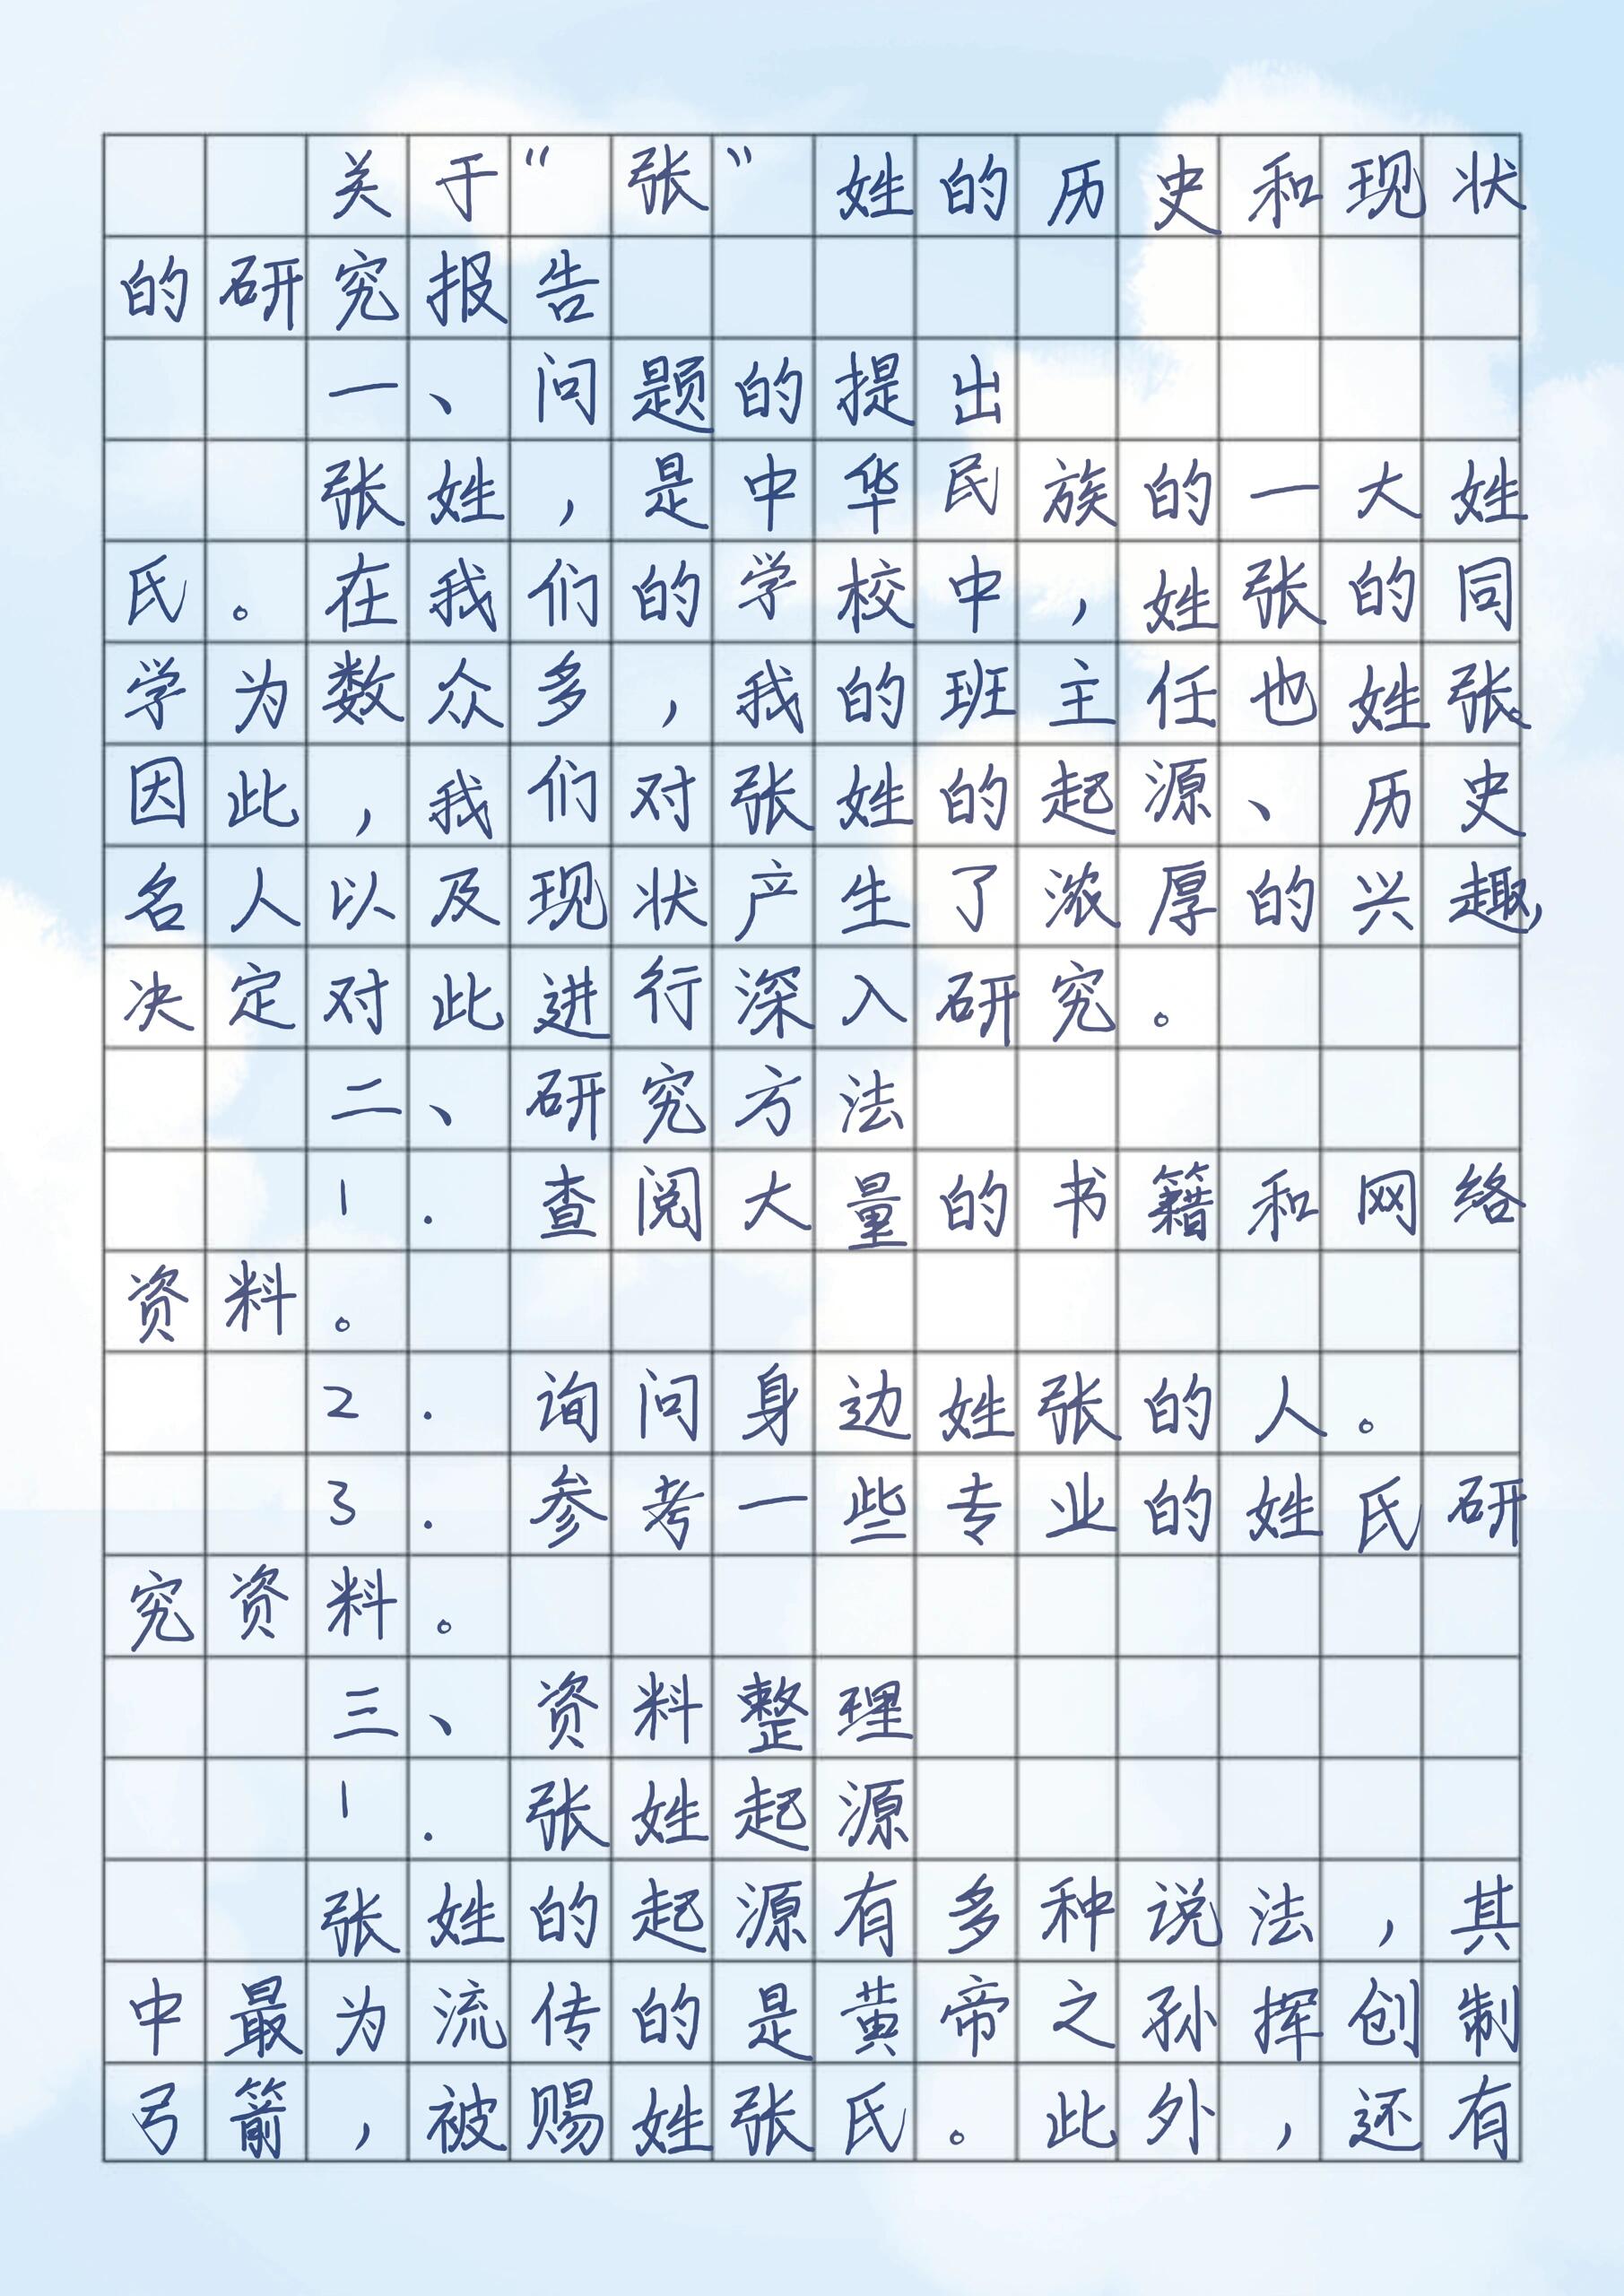 关于“张”姓的历史和现状
的研究报告
一、问题的提出
张姓，是中华民族的一大姓
氏。在我们的学校中，姓张的同
学为数众多，我的班主任也姓张。
因此，我们对张姓的起源、历史
名人以及现状产生了浓厚的兴趣，
决定对此进行深入研究。
二、研究方法
1. 查阅大量的书籍和网络
资料。
2. 询问身边姓张的人。
3. 参考一些专业的姓氏研
究资料。
三、资料整理
1. 张姓起源
张姓的起源有多种说法，其
中最为流传的是黄帝之孙挥创制
弓箭，被赐姓张氏。此外，还有